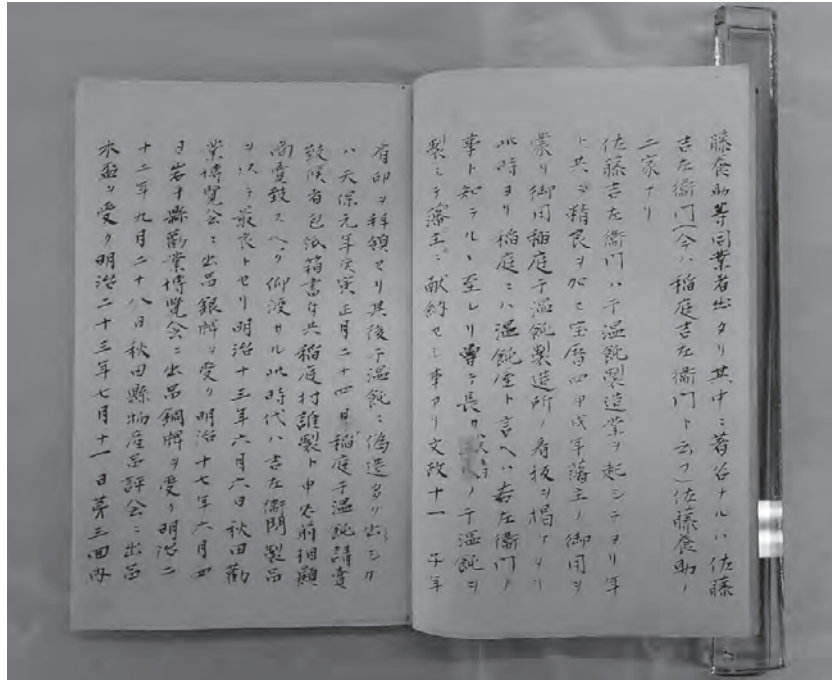 藤養助等同業者出タリ其中ニ著名ナルハ佐藤
吉左衞門(今ハ稲庭吉左衞門ト云フ)佐藤養助ノ
二家ナリ
佐藤吉左衞門ハ干温飩製造業ヲ起シテヨリ年
ト共ニ精良ヲ加ヒ宝暦四甲戌年藩主ノ御用ヲ
蒙リ御用稲庭干温飩製造所ノ看板ヲ掲ケタリ
此時ヨリ稲庭ニハ温飩屋ト言ヘハ吉左衞門ノ
事ト知ラルヽ至レリ曽テ長サ八尺五寸ノ干温飩ヲ
製シテ藩主ニ献納セシ事アリ文政十一子年
有印ヲ拝領セリ其後干温飩ニ偽造多ク出シク
ハ天保元年庚寅正月二十四日稲庭干温飩請賣
致候者包紙箱書等共稲庭村誰製ト申名前相顕
商賣致スヘク仰渡サル此時代ハ吉左衞門製品
ヲ以テ最良トセリ明治十三年六月六日秋田勸
業博覽会ニ出品銀牌ヲ受ク明治十七年六月四
日岩手縣勸業博覽会ニ出品銅牌ヲ受ク明治二
十二年九月二十八日秋田縣物産品評会ニ出品
木盃ヲ受ク明治二十三年七月十一日第三回内